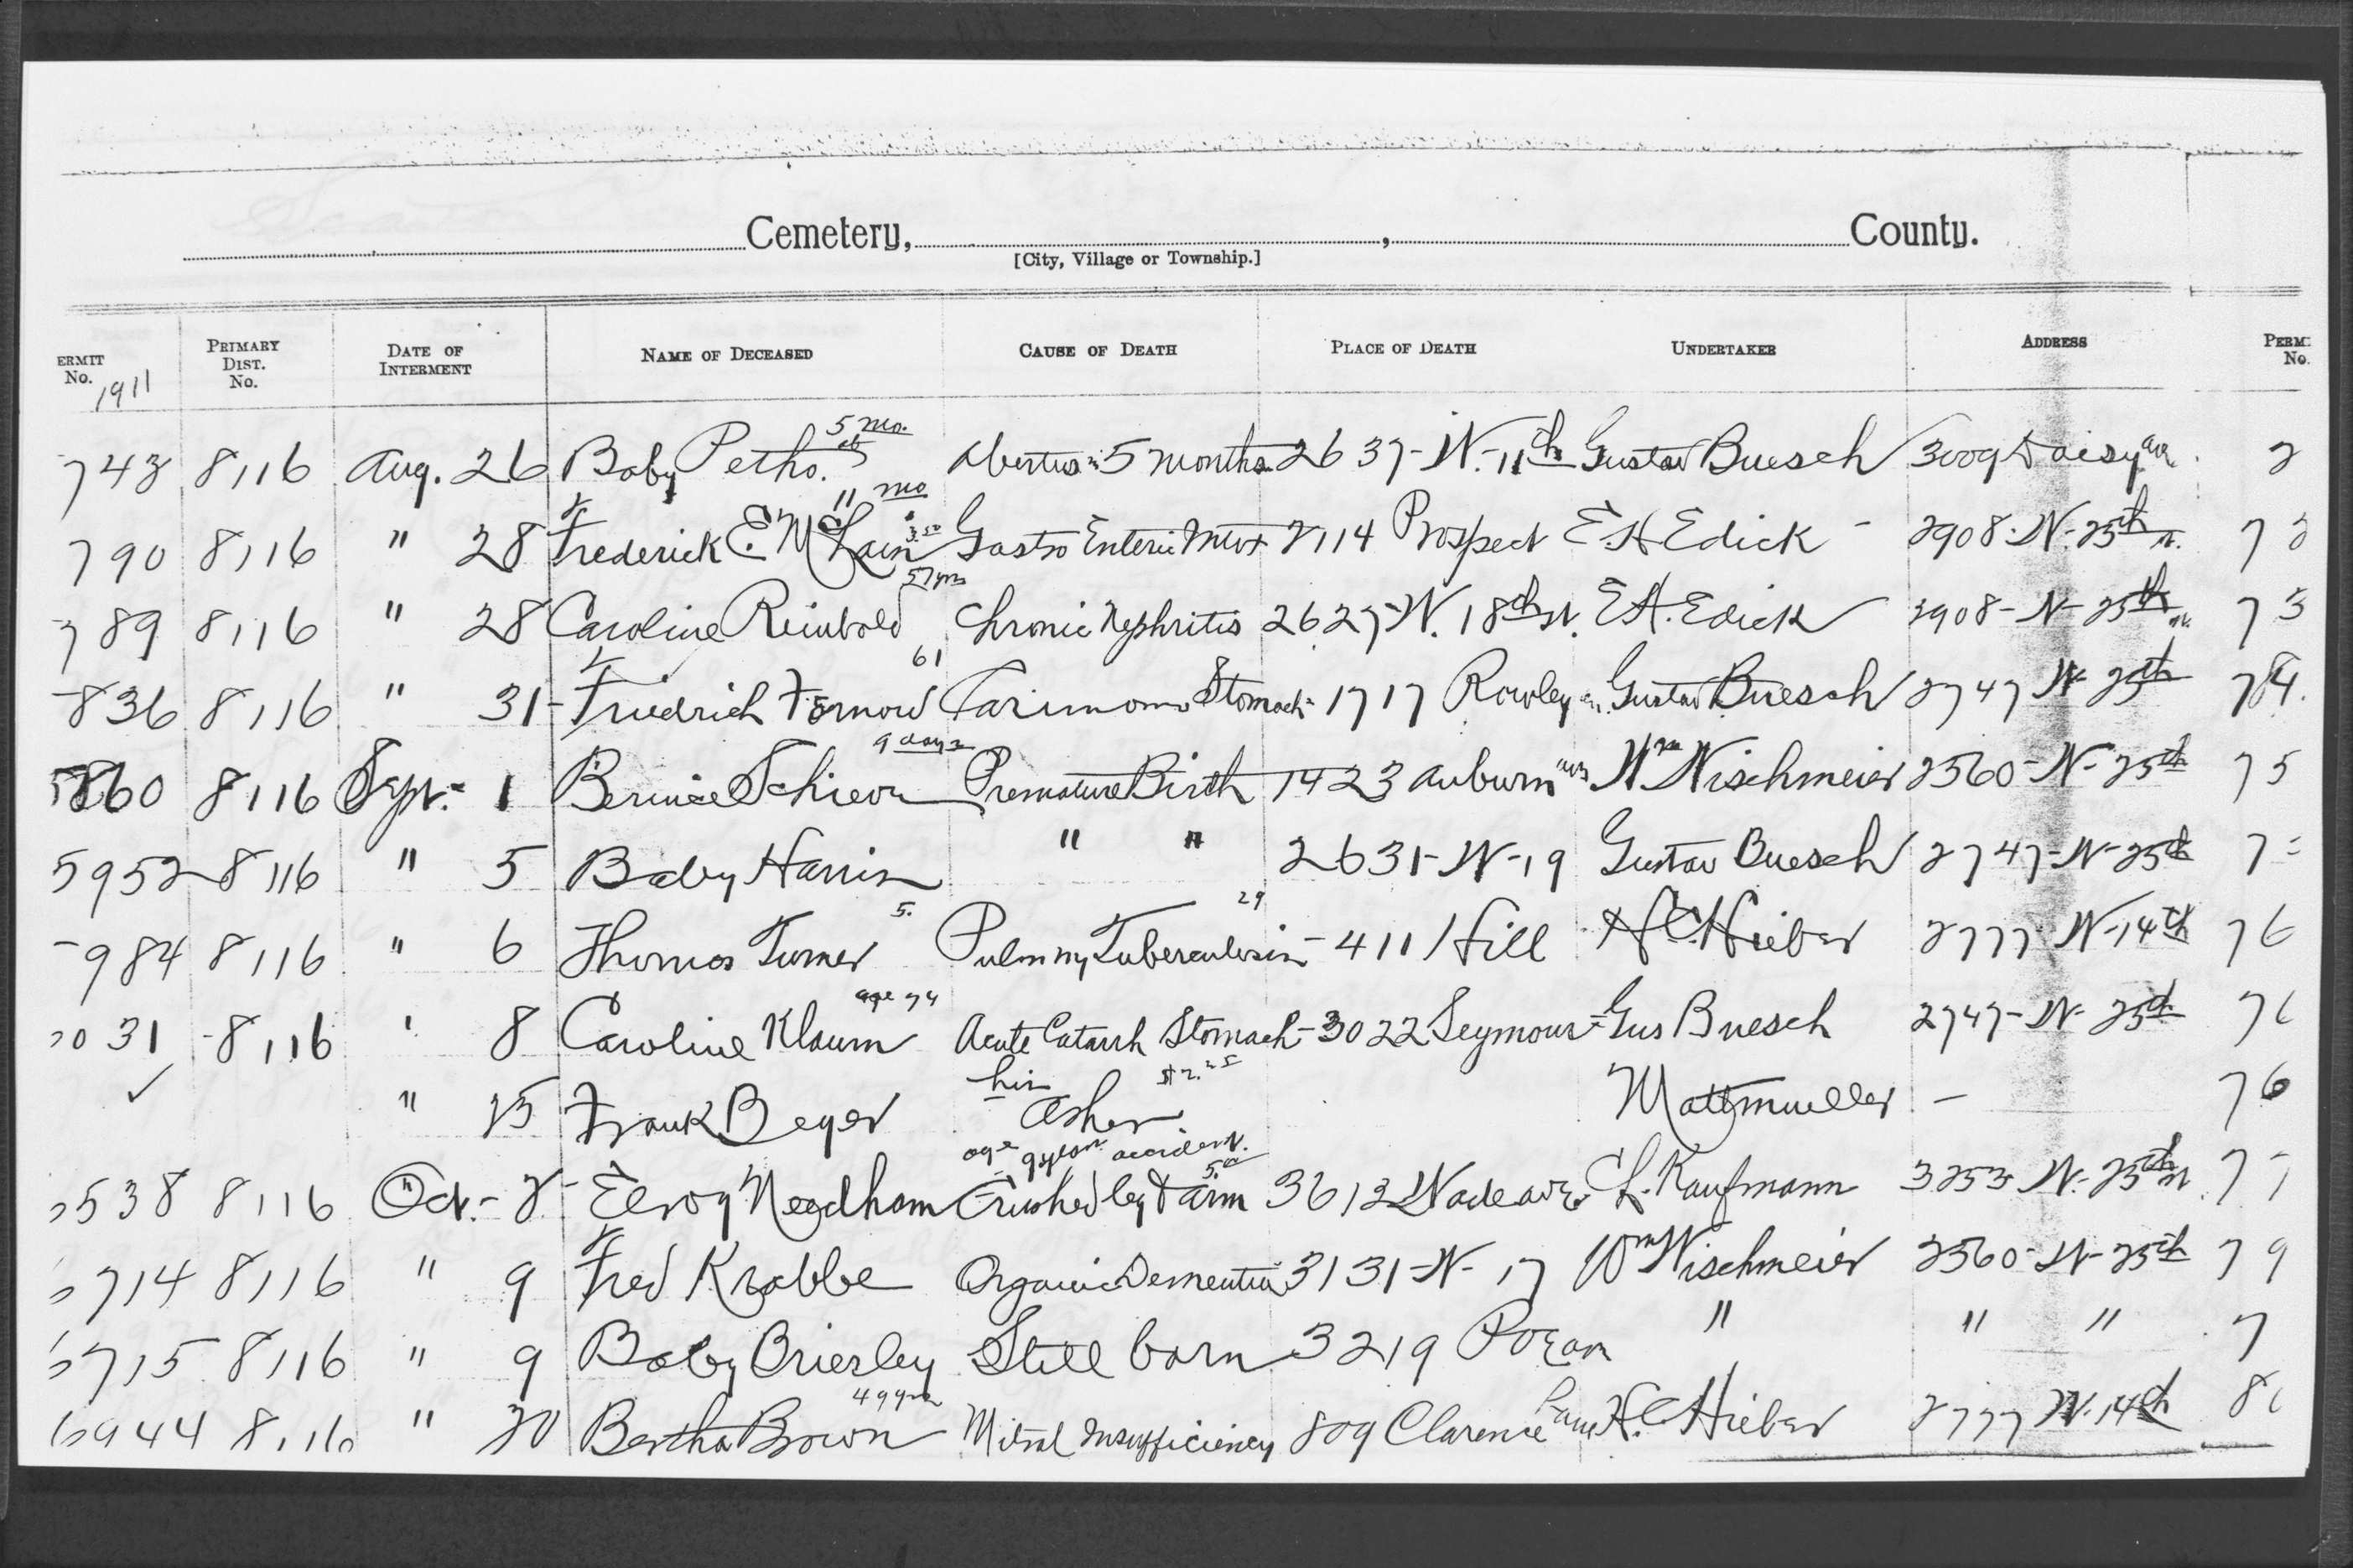 Cemetery, , County.
[City, Village or Township.]
ERMIT No. 1911 PRIMARY DIST. No. DATE OF INTERMENT NAME OF DECEASED CAUSE OF DEATH PLACE OF DEATH UNDERTAKER ADDRESS PERM No.
743 8116 Aug. 26 Baby Petho. 5 mo. 5 months 2637-N.-11th Gustav Buesch 3009 Daisy ave 2
790 8116 " 28 Frederick E. McLain 11 mo Gastro Enteric 2114 Prospect E.A. Edick - 2908-N-25th st. 73
789 8116 " 28 Caroline Reinbold 57 yrs Chronic Nephritis 2627-N. 18th st. E.A. Edick 2908-N-25th st. 73
836 8116 " 31- Friedrich Fornow 61 Carinoma Stomach- 1717 Rowley Gustav Buesch 2747 N-25th 74.
5860 8116 Sept.- 1 Bernice Schieve 9 days Premature Birth 1423 Auburn ave Wm Wischmeier 2560-N-25th 75
5952 8116 " 5 Baby Harris " " 2631-N-19 Gustav Buesch 2747-N-25th 7
984 8116 " 6 Thomas Turner Pulmny Tuberculosis- 29 411 Hill H.C. Hieber 2777 N-14th 76
031 8116 ' 8 Caroline Klaum age 74 Acute Catarrh Stomach- 3022 Seymour- Gus Buesch 2747-N-25th 76
✓ " 15 Frank Beyer his Ashes Mattmueller - 76
538 8116 Oct.- 2- Elroy Needham age 9 years accident. Crushed by 3612 Wade ave L. Kaufmann 3253 N.-25th st. 77
5714 8116 " 9 Fred Krabbe Organic Dementia 3131-N-17 Wm Wischmeier 2560-N-25th 79
5715 8116 " 9 Baby Brierley Still born 3219 " " " 7
6944 8116 " 20 Bertha Brown 49 yrs Mitral Insufficiency 809 Clarence H.C. Hieber 2777 N.14th 8